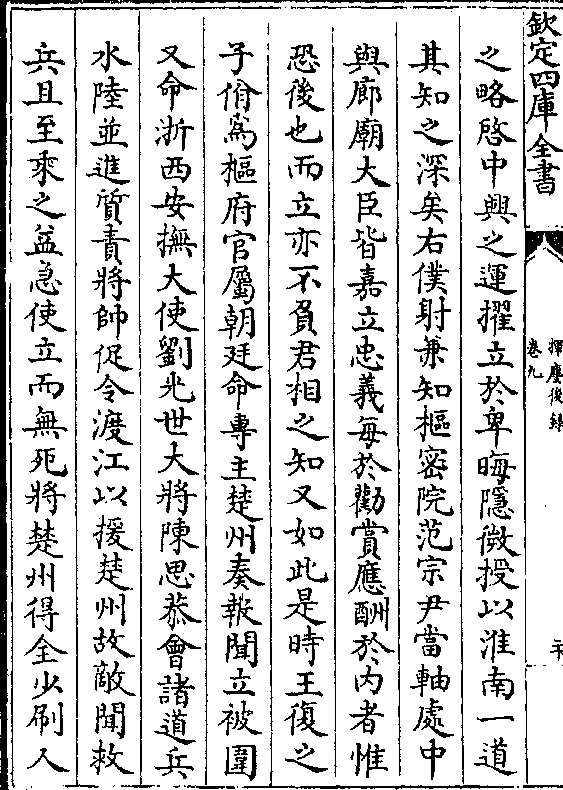 欽定四庫全書
揮麈後錄
卷九
二十
之略啓中興之運擢立於卑晦隱微授以淮南一道
其知之深矣右僕射兼知樞密院范宗尹當軸處中
與廊廟大臣皆嘉立忠義每於勸賞應酬於内者惟
恐後也而立亦不負君相之知又如此是時王復之
子佾為樞府官屬朝廷命專主楚州奏報聞立被圍
又命浙西安撫大使劉光世大將陳思恭會諸道兵
水陸並進質責將帥促令渡江以援楚州故敵聞救
兵且至乘之益急使立而無死將楚州得全少刷人